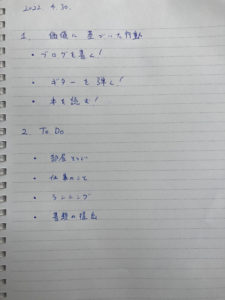 2022. 4. 30.
1. 価値に基づいた行動
・ブログを書く!
・ギターを弾く!
・本を読む!
2. To Do
・部屋そうじ
・仕事のこと
・ランニング
・書類の